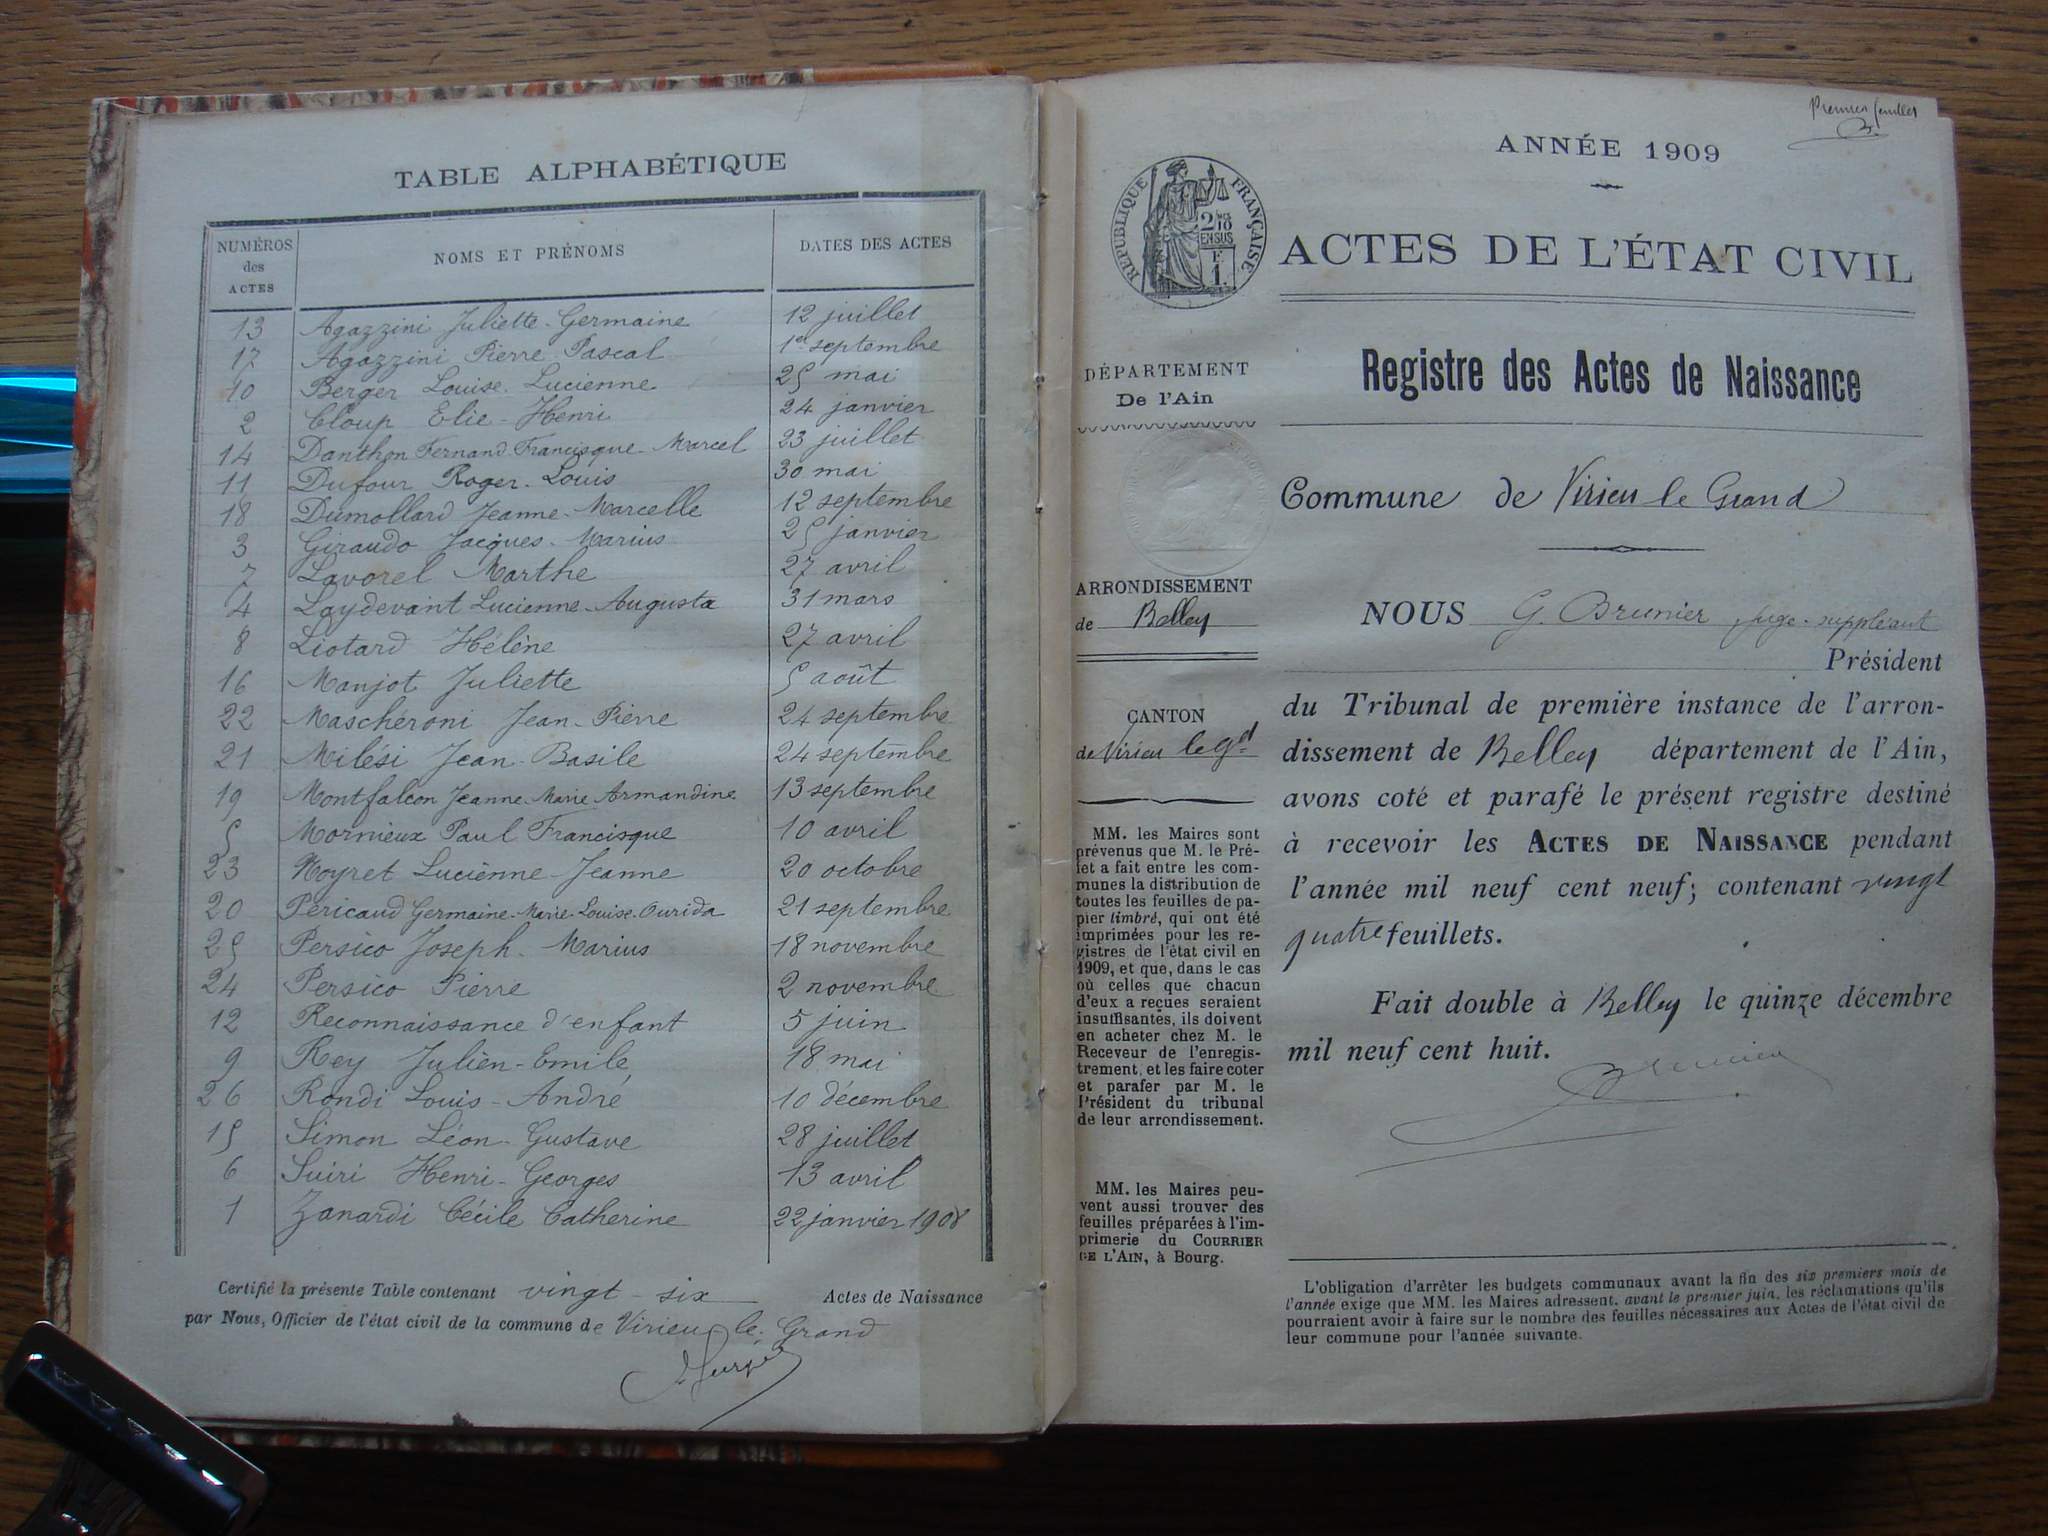 TABLE ALPHABÉTIQUE
NUMÉROS des ACTES NOMS ET PRÉNOMS DATES DES ACTES
13 Agazzini Juliette-Germaine 12 juillet
17 Agazzini Pierre-Pascal 1er septembre
10 Berger Louise-Lucienne 25 mai
2 Cloup Elie-Henri 24 janvier
14 Danthon Fernand-Francisque-Marcel 23 juillet
11 Dufour Roger-Louis 30 mai
18 Dumollard Jeanne-Marcelle 12 septembre
3 Giraudo Jacques-Marius 25 janvier
7 Lavorel Marthe 27 avril
4 Laydevant Lucienne-Augusta 31 mars
8 Liotard Hélène 27 avril
16 Manjot Juliette 5 août
22 Maschéroni Jean-Pierre 24 septembre
21 Milési Jean-Basile 24 septembre
19 Montfalcon Jeanne-Marie-Armandine 13 septembre
5 Mornieux Paul Francisque 10 avril
23 Noyret Lucienne-Jeanne 20 octobre
20 Péricaud Germaine-Marie-Louise-Ourida 21 septembre
25 Persico Joseph-Marius 18 novembre
24 Persico Pierre 2 novembre
12 Reconnaissance d'enfant 5 juin
9 Rey Julien-Emile 18 mai
26 Rondi Louis-André 10 décembre
15 Simon Léon-Gustave 28 juillet
6 Suiri Henri-Georges 13 avril
1 Zanardi Cécile Catherine 22 janvier 1908
Certifié la présente Table contenant vingt-six Actes de Naissance
par Nous, Officier de l'état civil de la commune de Virieu-le-Grand
Premier feuillet
ANNÉE 1909
RÉPUBLIQUE FRANÇAISE
2/10 EN SUS
1 F.
ACTES DE L'ÉTAT CIVIL
DÉPARTEMENT
De l'Ain
Registre des Actes de Naissance
Commune de Virieu le Grand
ARRONDISSEMENT
de Belley
CANTON
de Virieu le Gd
MM. les Maires sont
prévenus que M. le Pré-
fet a fait entre les com-
munes la distribution de
toutes les feuilles de pa-
pier timbré, qui ont été
imprimées pour les re-
gistres de l'état civil en
1909, et que, dans le cas
où celles que chacun
d'eux a reçues seraient
insuffisantes, ils doivent
en acheter chez M. le
Receveur de l'enregis-
trement, et les faire coter
et parafer par M. le
Président du tribunal
de leur arrondissement.
MM. les Maires peu-
vent aussi trouver des
feuilles préparées à l'im-
primerie du COURRIER
DE L'AIN, à Bourg.
NOUS G. Brunier Juge-suppléant
Président
du Tribunal de première instance de l'arron-
dissement de Belley département de l'Ain,
avons coté et parafé le présent registre destiné
à recevoir les ACTES DE NAISSANCE pendant
l'année mil neuf cent neuf; contenant vingt
quatre feuillets.
Fait double à Belley le quinze décembre
mil neuf cent huit.
Brunier
L'obligation d'arrêter les budgets communaux avant la fin des six premiers mois de
l'année exige que MM. les Maires adressent, avant le premier juin, les réclamations qu'ils
pourraient avoir à faire sur le nombre des feuilles nécessaires aux Actes de l'état civil de
leur commune pour l'année suivante.